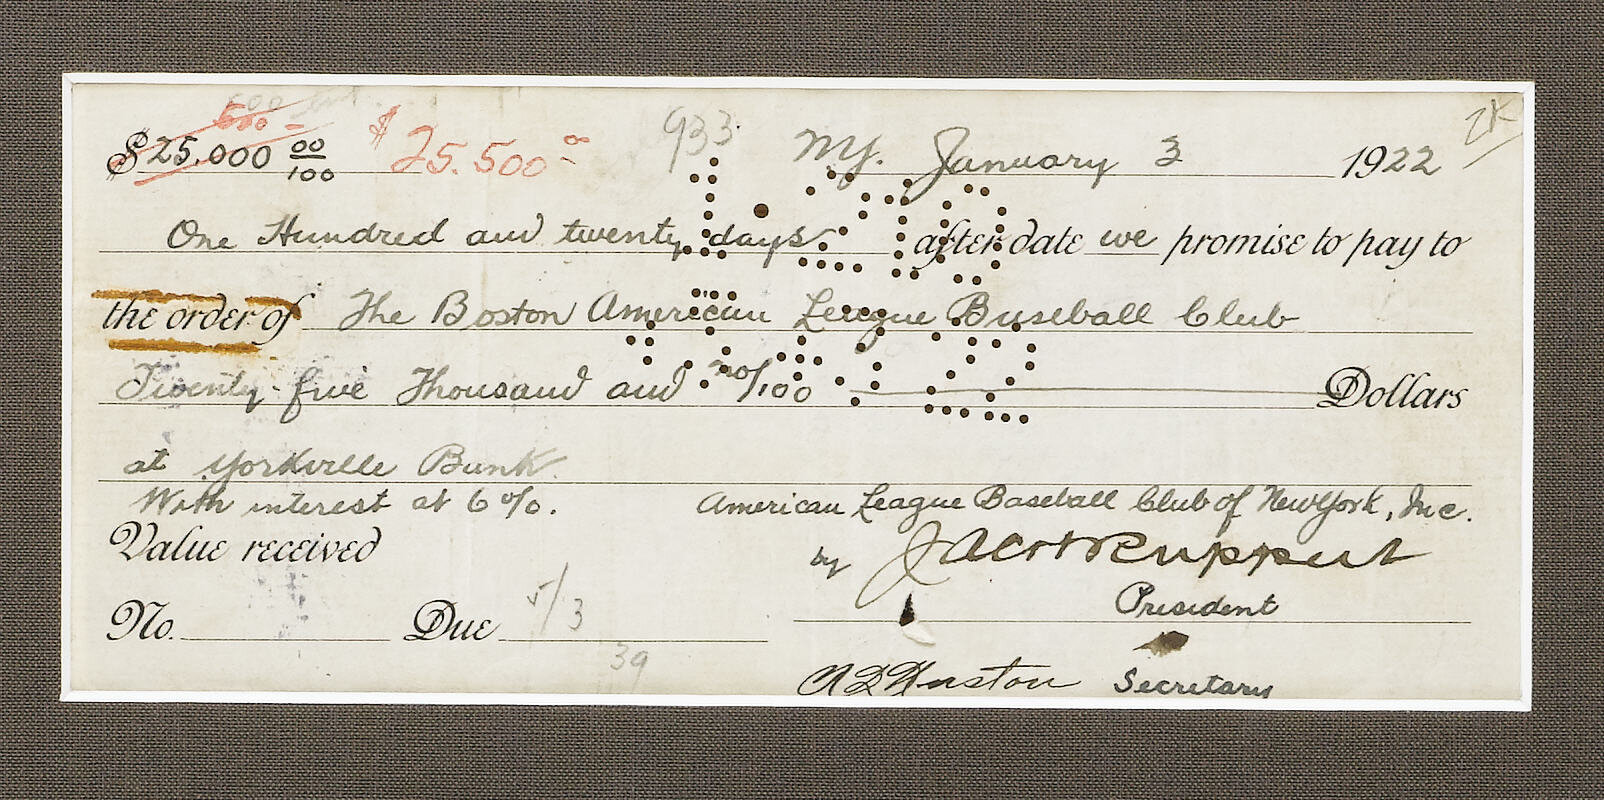 $25.000 00/100 $25.500 00 933 NY. January 3 1922
One Hundred and twenty days after date we promise to pay to
the order of The Boston American League Baseball Club
Twenty-five Thousand and no/100 Dollars
at Yorkville Bank
With interest at 6%. American League Baseball Club of New York, Inc.
Value received by Jacob Ruppert
President
No. Due 5/3
39
Secretary